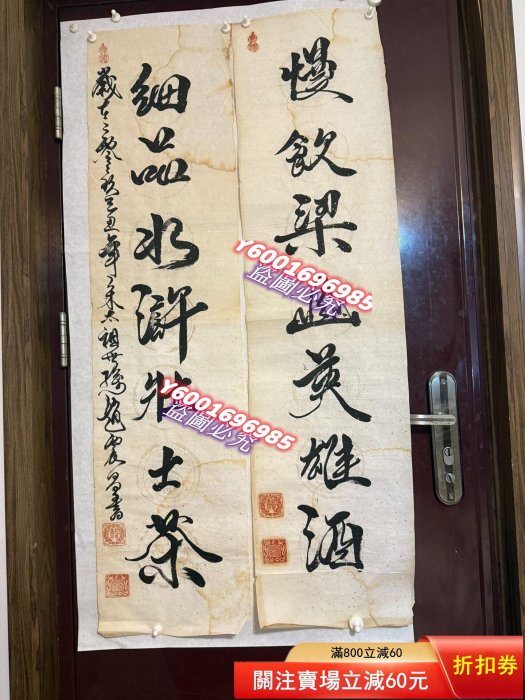 慢飲梁山英雄酒
細品水滸壯士茶
Y6001696985
盜圖必究
Y6001696985
盜圖必究
滿800立減60
關注賣場立減60元
折扣券